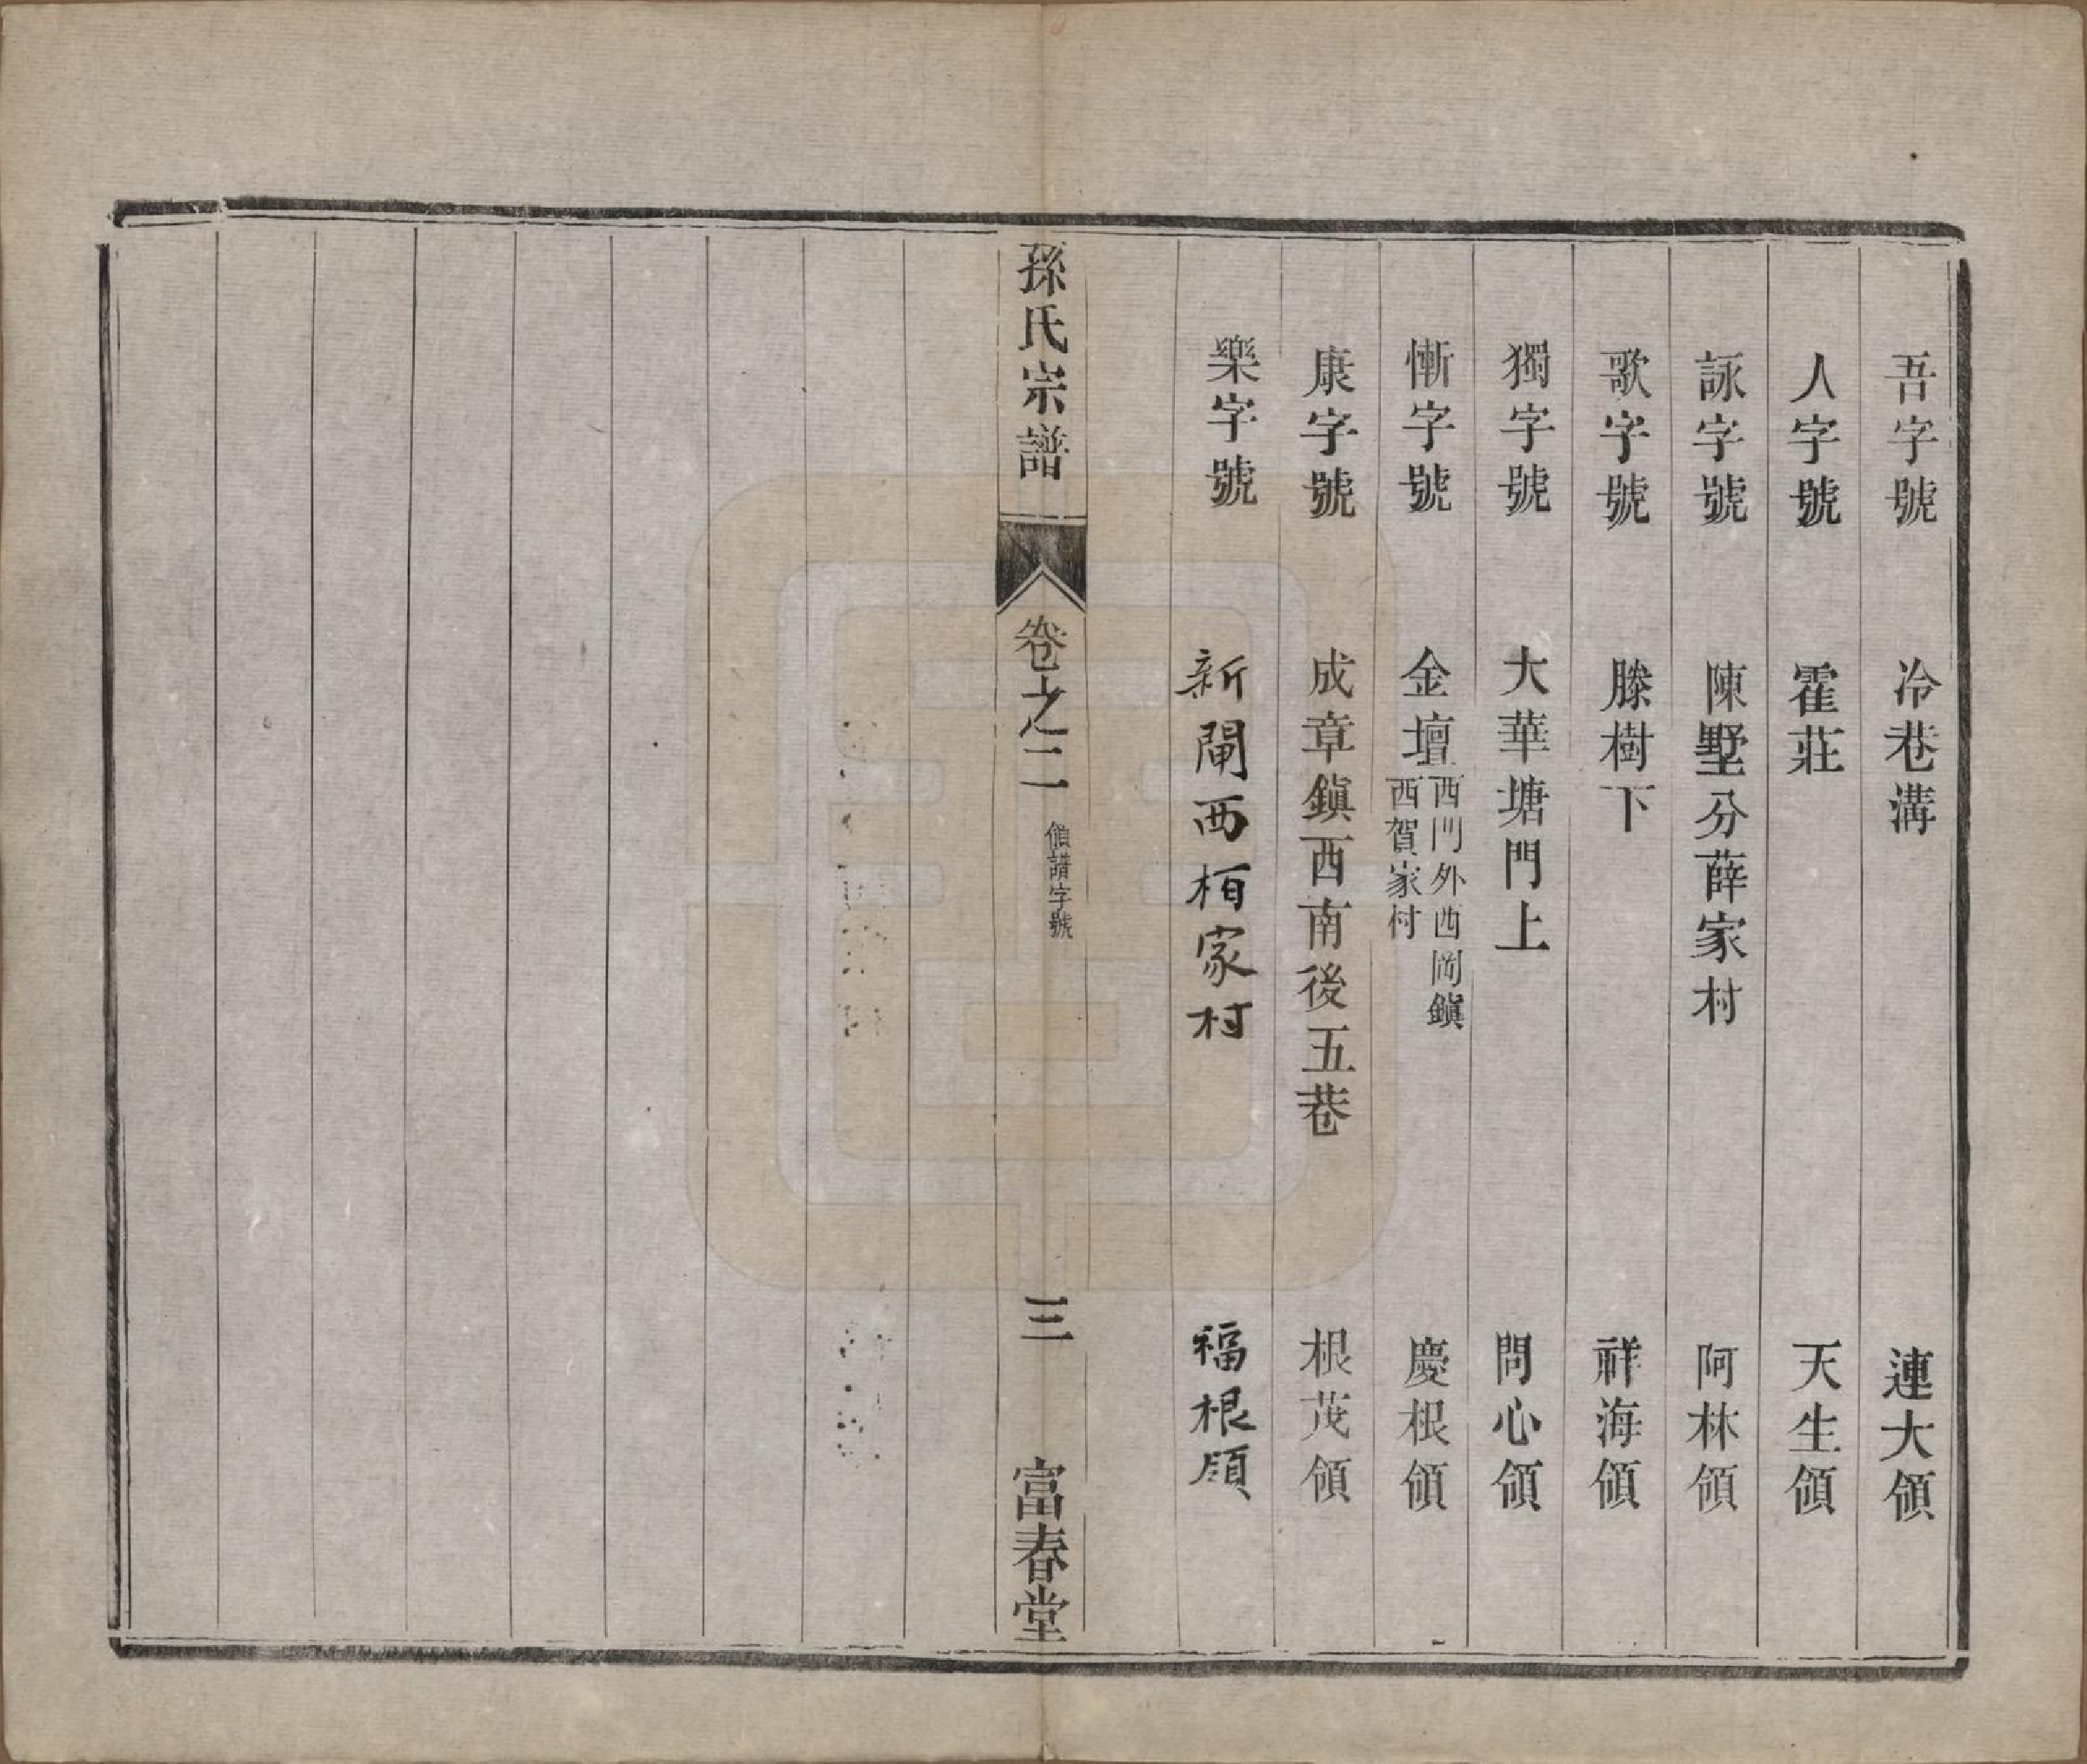 吾字號　冷巷溝　連大領
人字號　霍莊　天生領
詠字號　陳墅分薛家村　阿林領
歌字號　滕樹下　祥海領
獨字號　大華塘門上　問心領
慚字號　金壇西門外西岡鎮西賀家村　慶根領
康字號　成章鎭西南後五巷　根茂領
樂字號　新閘西栢家村　福根領
孫氏宗譜　卷之二　領譜字號　三　富春堂